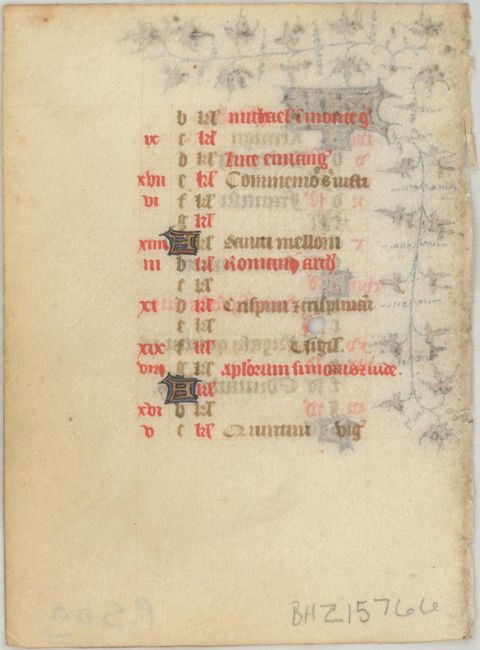 b kl' michael i monte g'
ix c kl'
d kl' luce euu͂ng'
xvii e kl' Commemo
vi f kl'
g kl'
xiiii A kl' Sancti melloni
iii b kl' Romani arch'
c kl'
xi d kl' Crispini z crispiniani
e kl'
xix f kl' Vigil.
viii g kl' Apl'orum simonis z iude.
A kl'
xvi b kl'
v c kl' Quintini vig'
BHZ15766